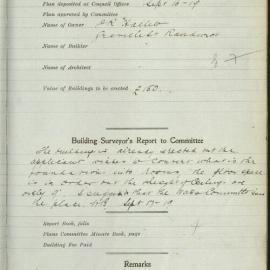 Plan deposited at Council Office Sept 16-19
Plan approved by Committee
Name of Owner
Randwick
Name of Builder
Name of Architect
Value of Buildings to be erected £ 150.
Building Surveyor's Report to Committee
The building is already erected but the
applicant wishes to convert what is the
foundations into rooms, the floor space
is in order but the height of Ceilings are
only 9' I suggest that the Works Committee view
the place. Sept 17-19
Report Book, folio
Plans Committee Minute Book, page
Building Fee Paid
Remarks